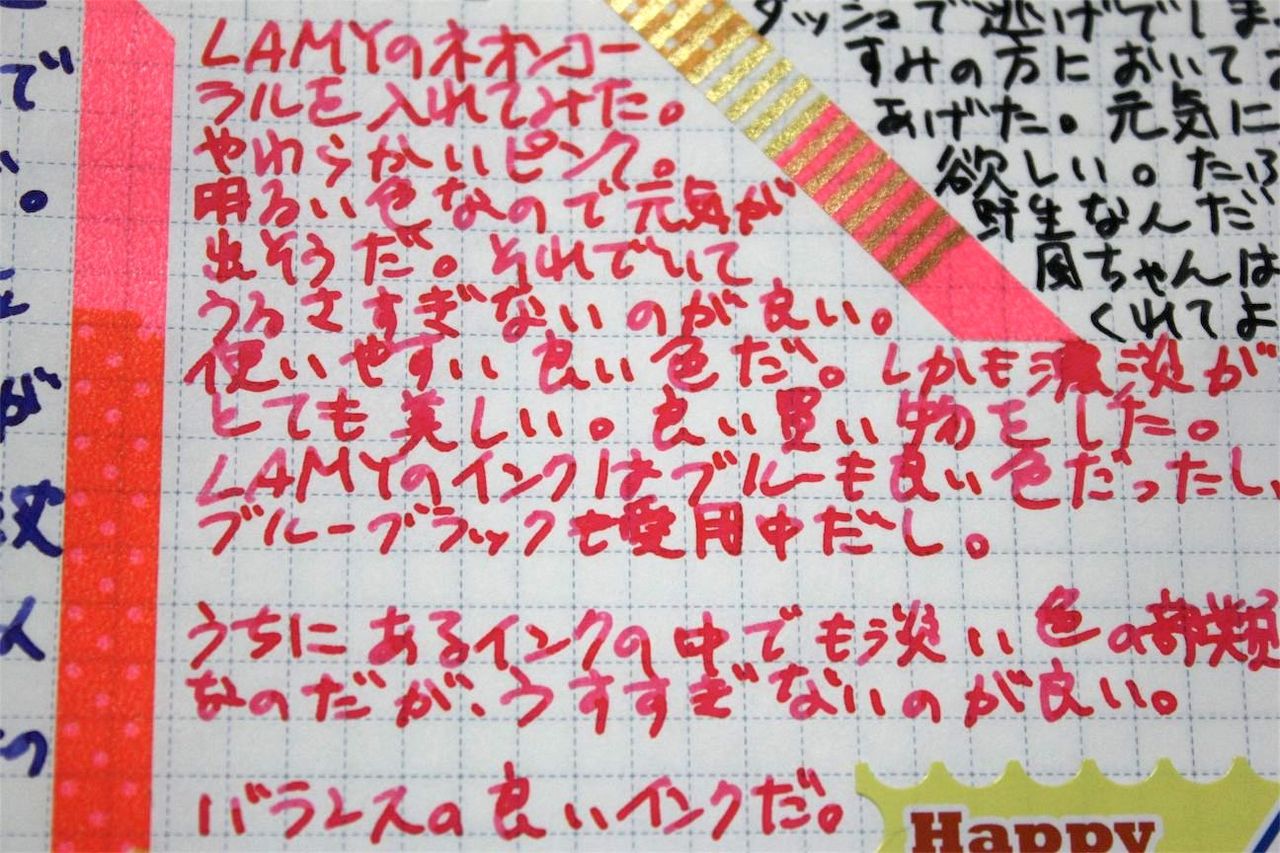 LAMYのネオンコー
ラルを入れてみた。
やわらかいピンク。
明るい色なので元気が
出そうだ。それでいて
うるさすぎないのが良い。
使いやすい良い色だ。しかも濃淡が
とても美しい。良い買い物をした。
LAMYのインクはブルーも良い色だったし、
ブルーブラックも愛用中だし。
うちにあるインクの中でもう淡い色の部類
なのだが、うすすぎないのが良い。
バランスの良いインクだ。
ダッシュで逃げてしま
すみの方において
あげた。元気に
欲しい。たぶ
野生なんだ
風ちゃんは
くれてよ
で
い。
が
つ
Happy